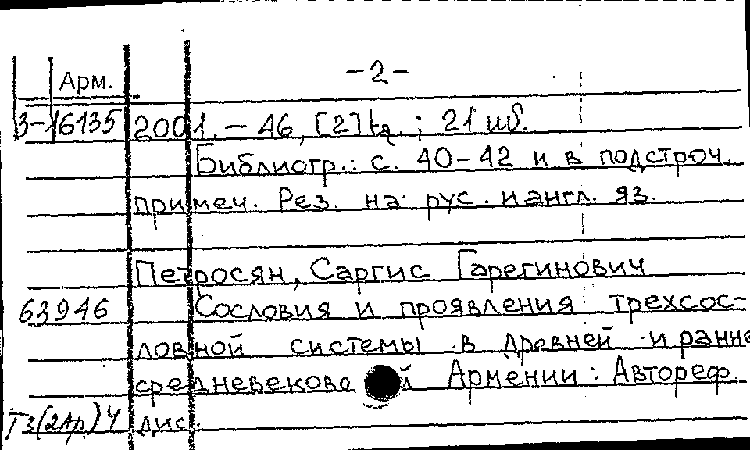 Арм. -2-
3-16135 2001. – 46, [2] էջ. ; 21 սմ.
Библиогр.: с. 40-42 и в подстроч.
примеч. Рез. на рус. и англ. яз.
Петросян, Саргис Гарегинович
63946 Сословия и проявления трехсос-
ловной системы в древней и ранне
средневековой Армении: Автореф.
Т3(2Ар)4 дис.